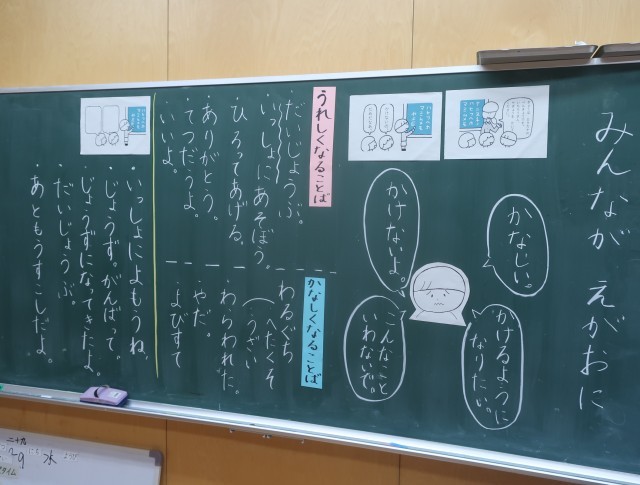 みんなが えがおに
かなしい。
かけるように
なりたい。
かけないよ。
こんなこと
いわないで。
うれしくなることば
・だいじょうぶ。
・いっしょにあそぼう。
・ひろってあげる。
・ありがとう。
・てつだうよ。
・いいよ。
かなしくなることば
・わるぐち
へたくそ
うざい
・わらわれた。
・やだ。
・よびすて
・いっしょによもうね。
・じょうず。がんばって。
・じょうずになってきたよ。
・だいじょうぶ。
・あともうすこしだよ。
二十九
29
水
タイム